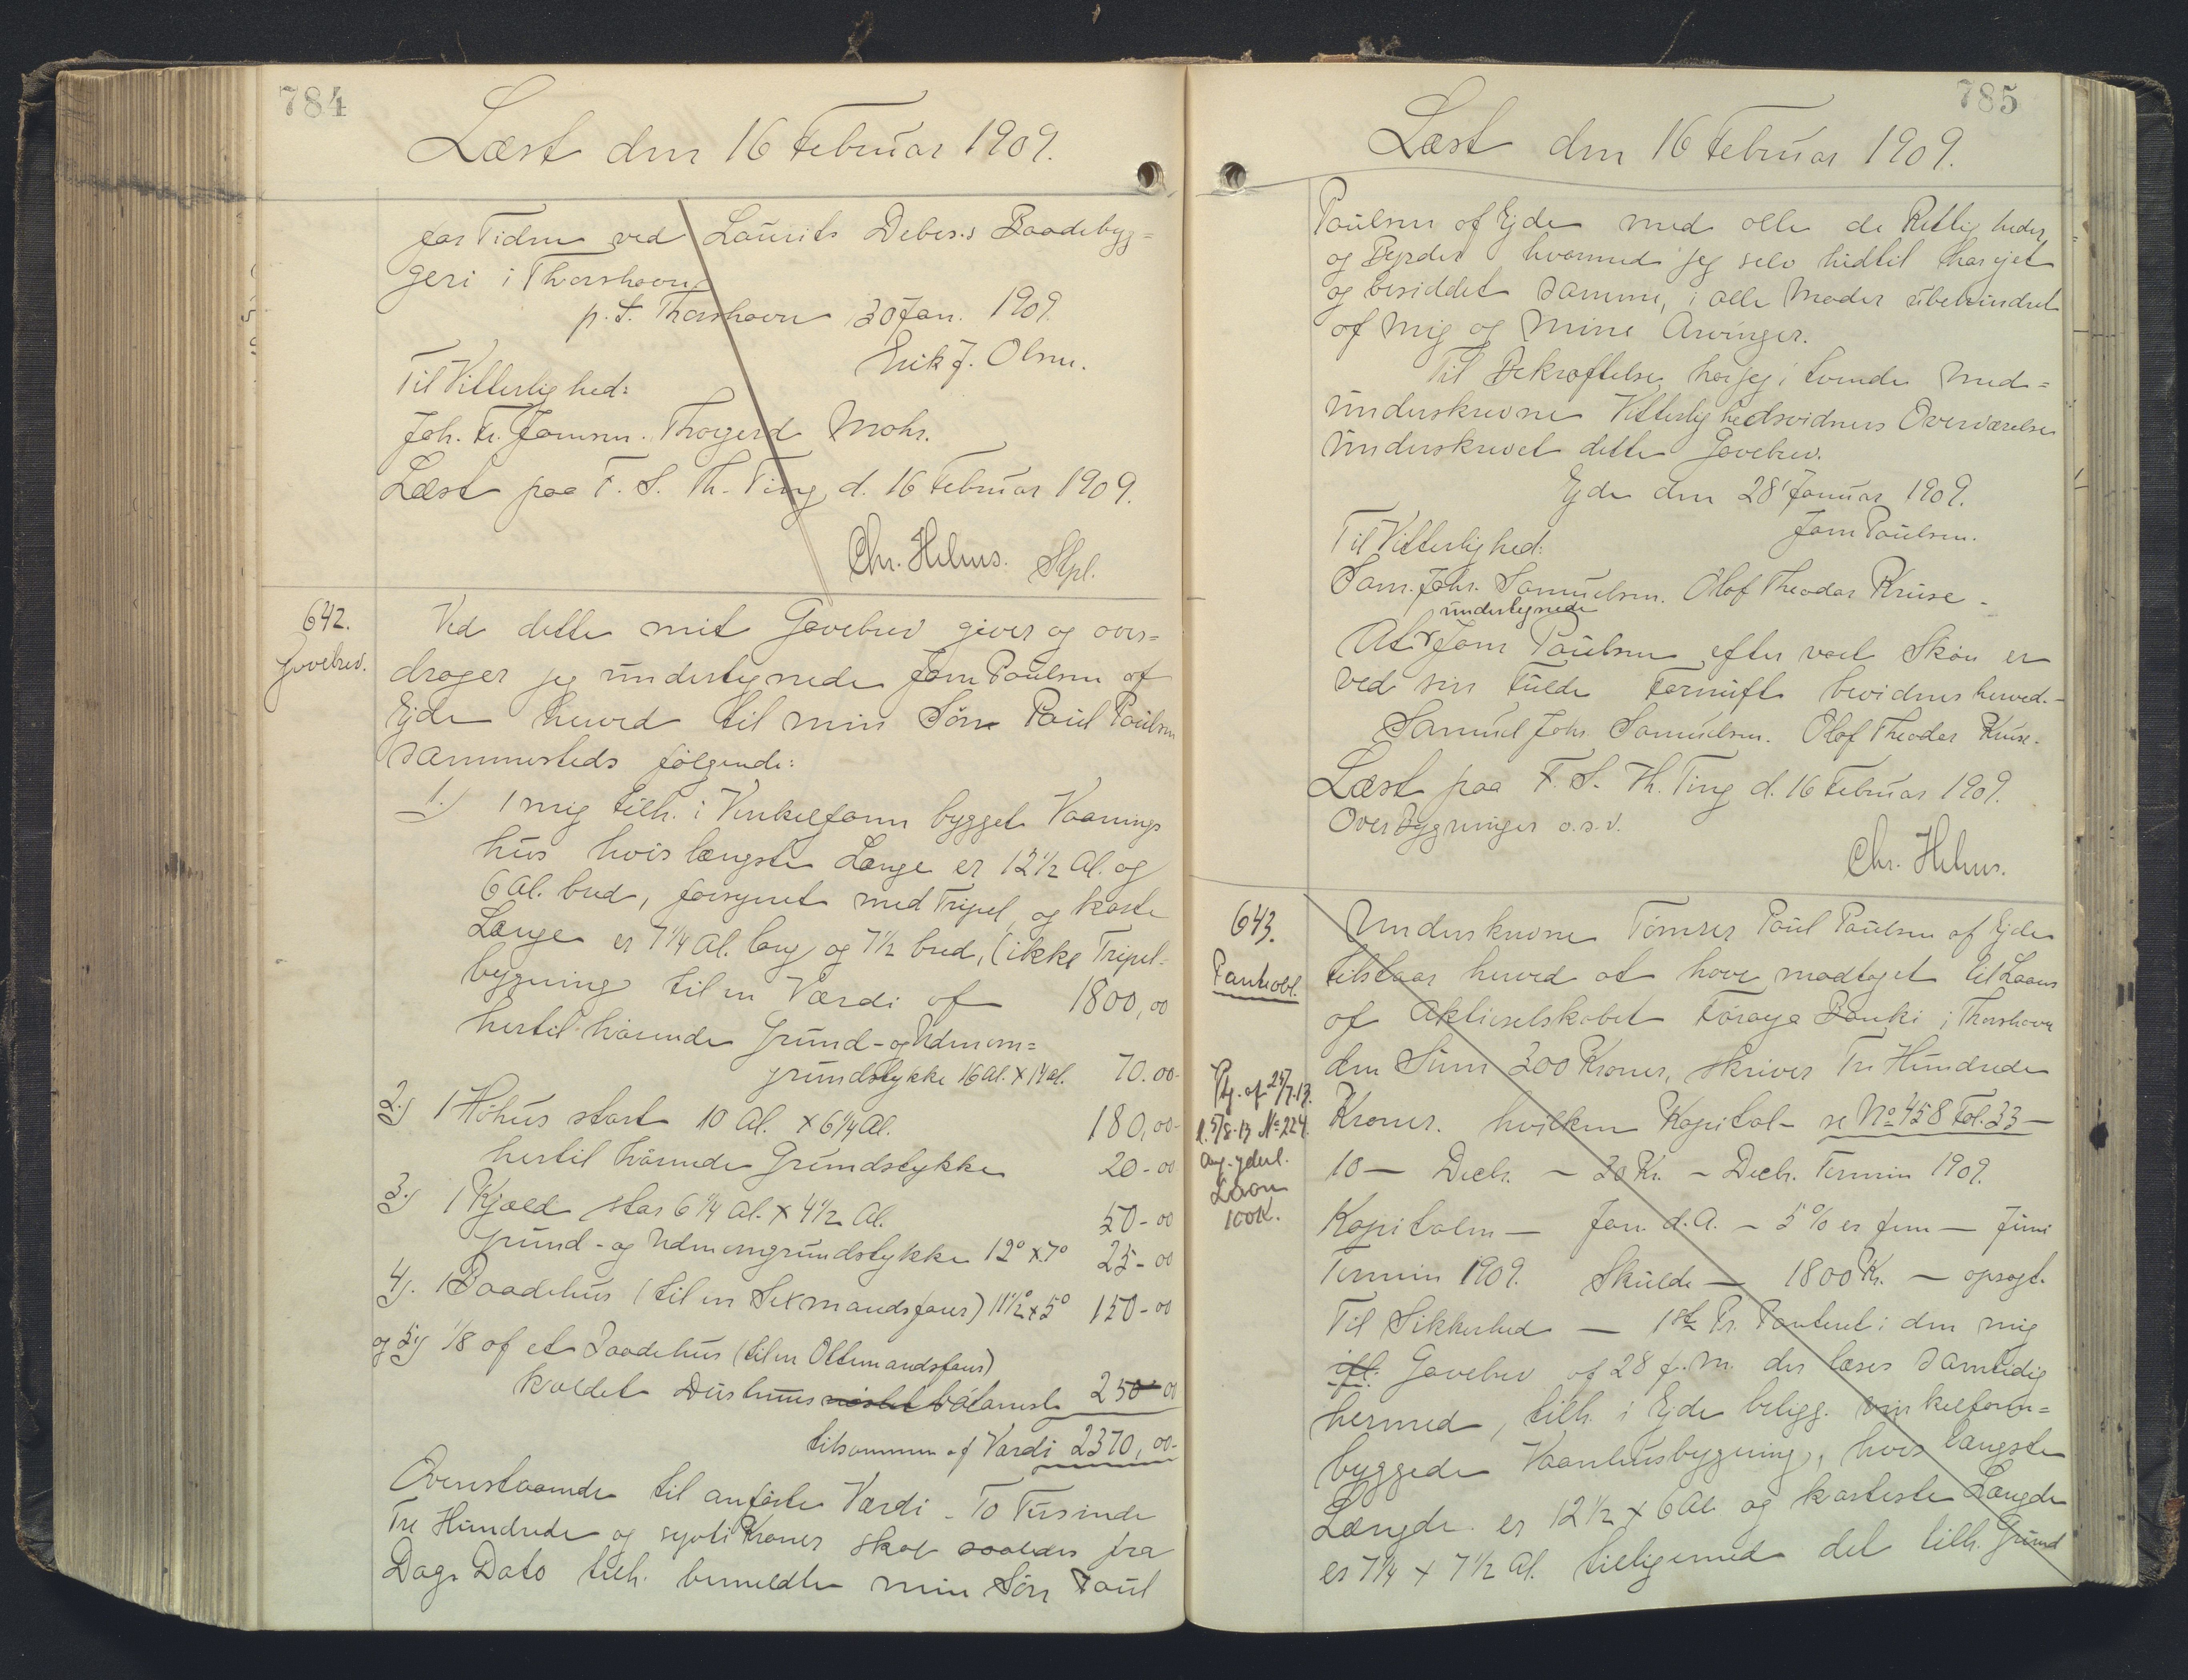 784
Læst den 16 Februar 1909.
for Tiden ved Laurits Debes.s Baadebyg=
geri i Thorshavn
p. t. Thorshavn 30 Jan. 1909
Erik J. Olsen.
Til Vitterlighed:
Joh. Fr. Joensen. Thogerd Mohr.
Læst paa F. S. Th. Ting d. 16 Februar 1909.
Chr. Helms. Stpl.
642.
Gavebrev.
Ved dette mit Gavebrev giver og over=
drager jeg undertegnede Joen Poulsen af
Ejde herved til min Søn Poul Poulsen
sammesteds følgende:
1.) 1 mig tilh. i Vinkelform bygget Vaanings
hus hvis længste Længe er 12 1/2 Al. og
6 Al. bred, forsynet med Tripel, og korte
Længe er 7 1/4 Al. lang og 7 1/2 bred, (ikke Tripel-
bygning til en Værdi af 1800,00
hertil hørende Grund- og Udmom=
grundstykke 16 Al. x 14 al. 70.00-
2.) 1 Høhus stort 10 Al. x 6 1/4 Al. 180,00-
hertil hørende Grundstykke 20-00
3.) 1 Kjæld stor 6 1/4 Al. x 4 1/2 Al. 50-00
Grund- og Udmomgrundstykke 12° x 7° 25-00
4). 1 Baadehus (til en Sexmandsfarer) 11 1/2° x 5° 150-00
og 5.) 1/8 af et Baadehus (til en Ottemandsfarer)
kaldet 250 00
tilsammen af Værdi 2370,00-
Ovenstaaende til anførte Værdi - To Tusinde
Tre Hundrede og syvti Kroner skal saaledes fra
Dags Dato tilh. bemeldte min Søn Poul
785
Læst den 16 Februar 1909.
Poulsen af Ejde med alle de Rettigheder
og Byrder hvormed jeg selv hidtil har ejet
og besiddet samme, i alle Maader ubehindret
af mig og mine Arvinger.
Til Bekræftelse har jeg i tvende med=
underskrevne Vitterlighedsvidners Overværelse
underskrevet dette Gavebrev.
Ejde den 28' Januar 1909.
Joen Poulsen.
Til Vitterlighed:
Sam. Johs. Samuelsen. Olof Theodor Kruse -
undertegnede
At Joen Poulsen efter vort Skøn er
ved sin fulde Fornuft bevidnes herved.-
Samuel Johs Samuelsen. Olof Theodor Kruse.
Læst paa F. S. Th. Ting d. 16 Februar 1909.
Over Bygninger o.s.v.
Chr. Helms.
643.
Panteobl.
Underskrevne Tømrer Poul Poulsen af Ejde
tilstaar herved at have modtaget til Laans
af Aktieselskabet Føroya Banki i Thorshavn
den Sum 300 Kroner, skriver Tre Hundrede
Kroner. hvilken Kapital - se No 458 Fol. 33 -
10 - Decb. - 30 Kr. - Decb. Termin 1909.
Kapitalen - Jan. d. A. - 5 % er fem - Juni
Termin 1909. Skulde - 1800 Kr. - opsagt.
Til Sikkerhed - 1ste Pr. Panteret i den mig
ifl. Gavebrev af 28 f. m. der læses samtidig
hermed, tilh. i Ejde beligg. vinkelform=
byggede Vaanhusbygning, hvis længste
Længde er 12 1/2 x 6 Al og korteste Længde
er 7 1/4 x 7 1/2 Al. tilligemed det tilh. Grund
Ptg. af 25/7. 13.
l. 5/8-13 No 224
ang. yderl.
Laan
100 K.